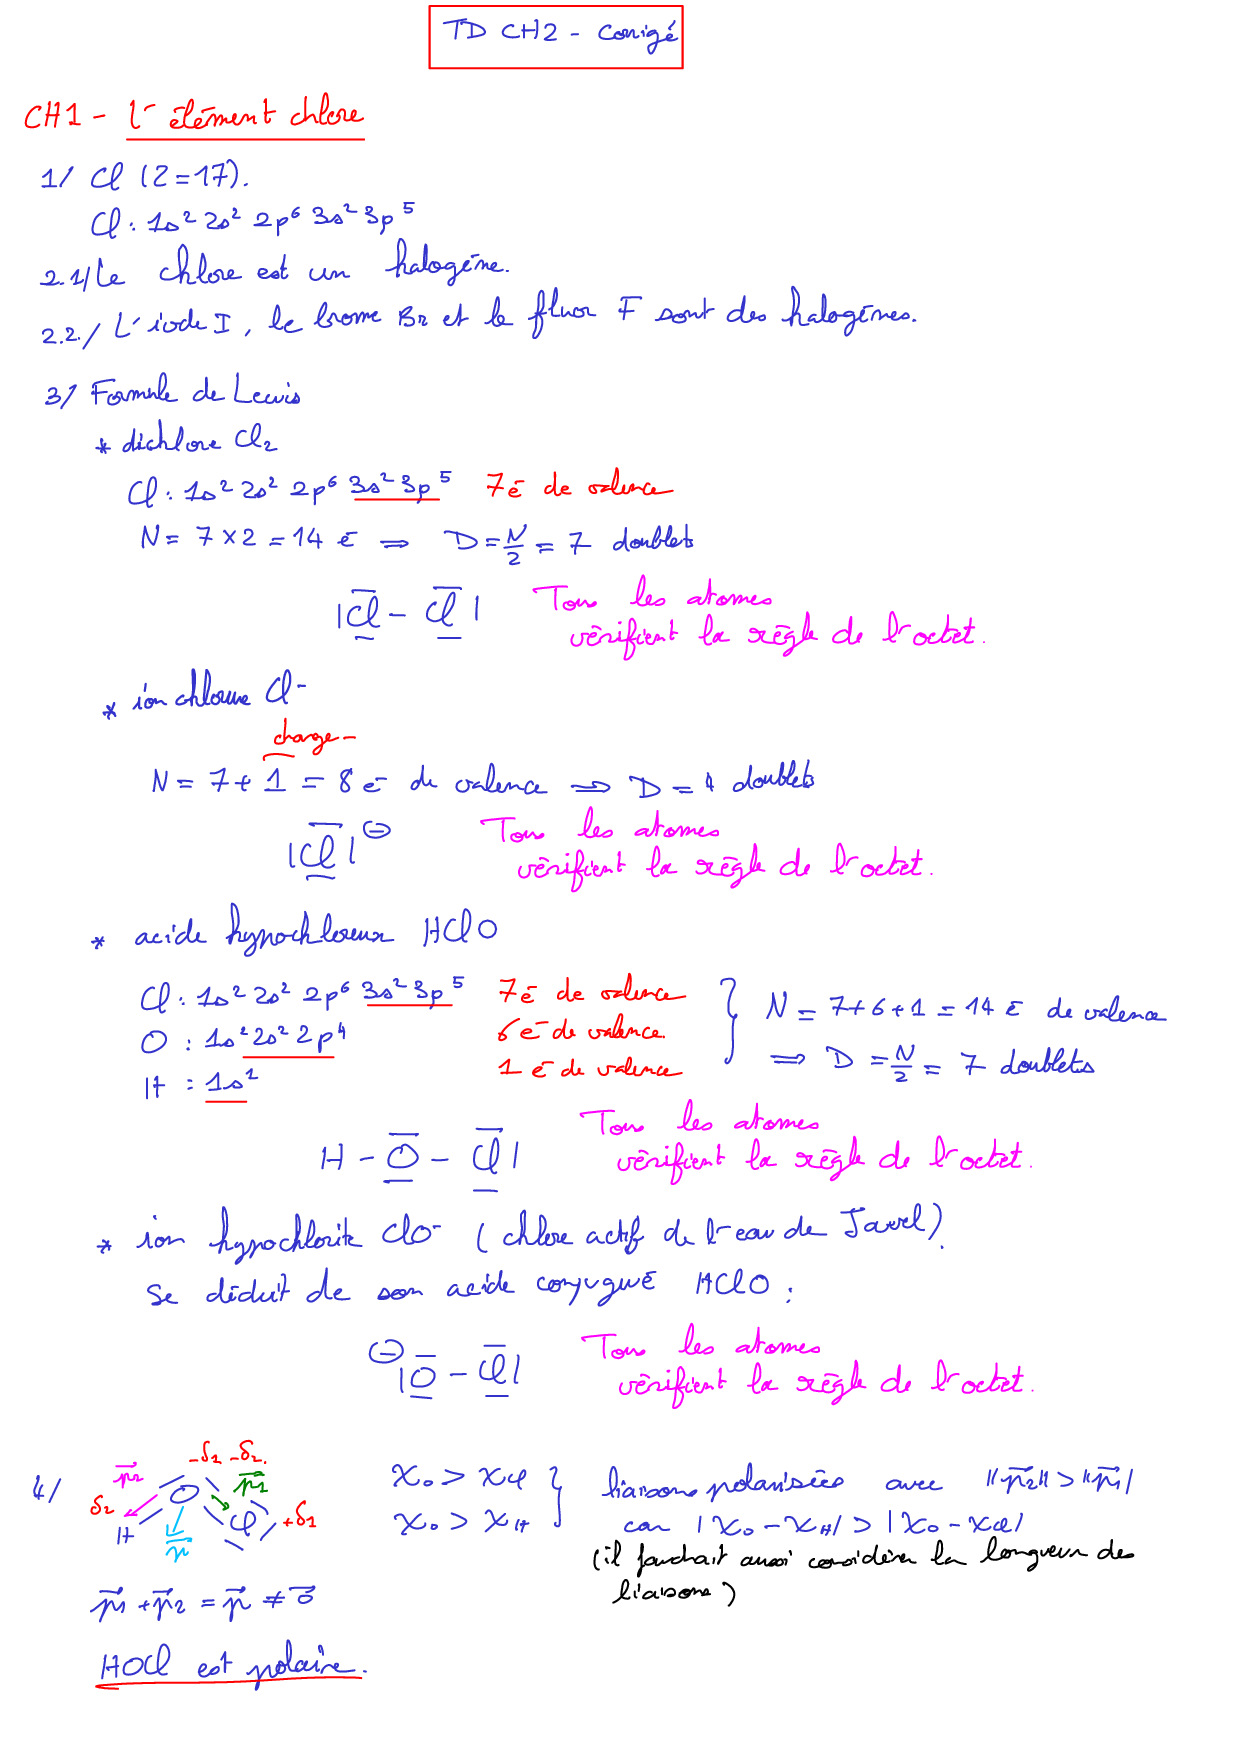 TD CH2 - Corrigé
CH1 - l'élément chlore
1/ Cl (Z=17).
Cl : 1s² 2s² 2p⁶ 3s² 3p⁵
2.1/ Le chlore est un halogène.
2.2./ L'iode I, le brome Br et le fluor F sont des halogènes.
3/ Formule de Lewis
* dichlore Cl₂
Cl : 1s² 2s² 2p⁶ 3s² 3p⁵ 7 é de valence
N = 7 × 2 = 14 é ⇒ D = N/2 = 7 doublets
|Cl - Cl| Tous les atomes
vérifient la règle de l'octet.
* ion chlorure Cl⁻
charge -
N = 7 + 1 = 8 e⁻ de valence ⇒ D = 4 doublets
|Cl|⊖ Tous les atomes
vérifient la règle de l'octet.
* acide hypochloreux HClO
Cl : 1s² 2s² 2p⁶ 3s² 3p⁵ 7 é de valence } N = 7+6+1 = 14 é de valence
O : 1s² 2s² 2p⁴ 6 e⁻ de valence
H : 1s¹ 1 é de valence ⇒ D = N/2 = 7 doublets
H - O - Cl| Tous les atomes
vérifient la règle de l'octet.
* ion hypochlorite ClO⁻ (chlore actif de l'eau de Javel).
Se déduit de son acide conjugué HClO :
⊖|O - Cl| Tous les atomes
vérifient la règle de l'octet.
-δ₁ -δ₂
4/ δ₂ p⃗₂ O p⃗₁ χO > χCl } liaisons polarisées avec ||p⃗₂|| > ||p⃗₁||
H p⃗ Cl +δ₁ χO > χH car |χO - χH| > |χO - χCl|
(il faudrait aussi considérer la longueur des
liaisons)
p⃗₁ + p⃗₂ = p⃗ ≠ 0⃗
HOCl est polaire.